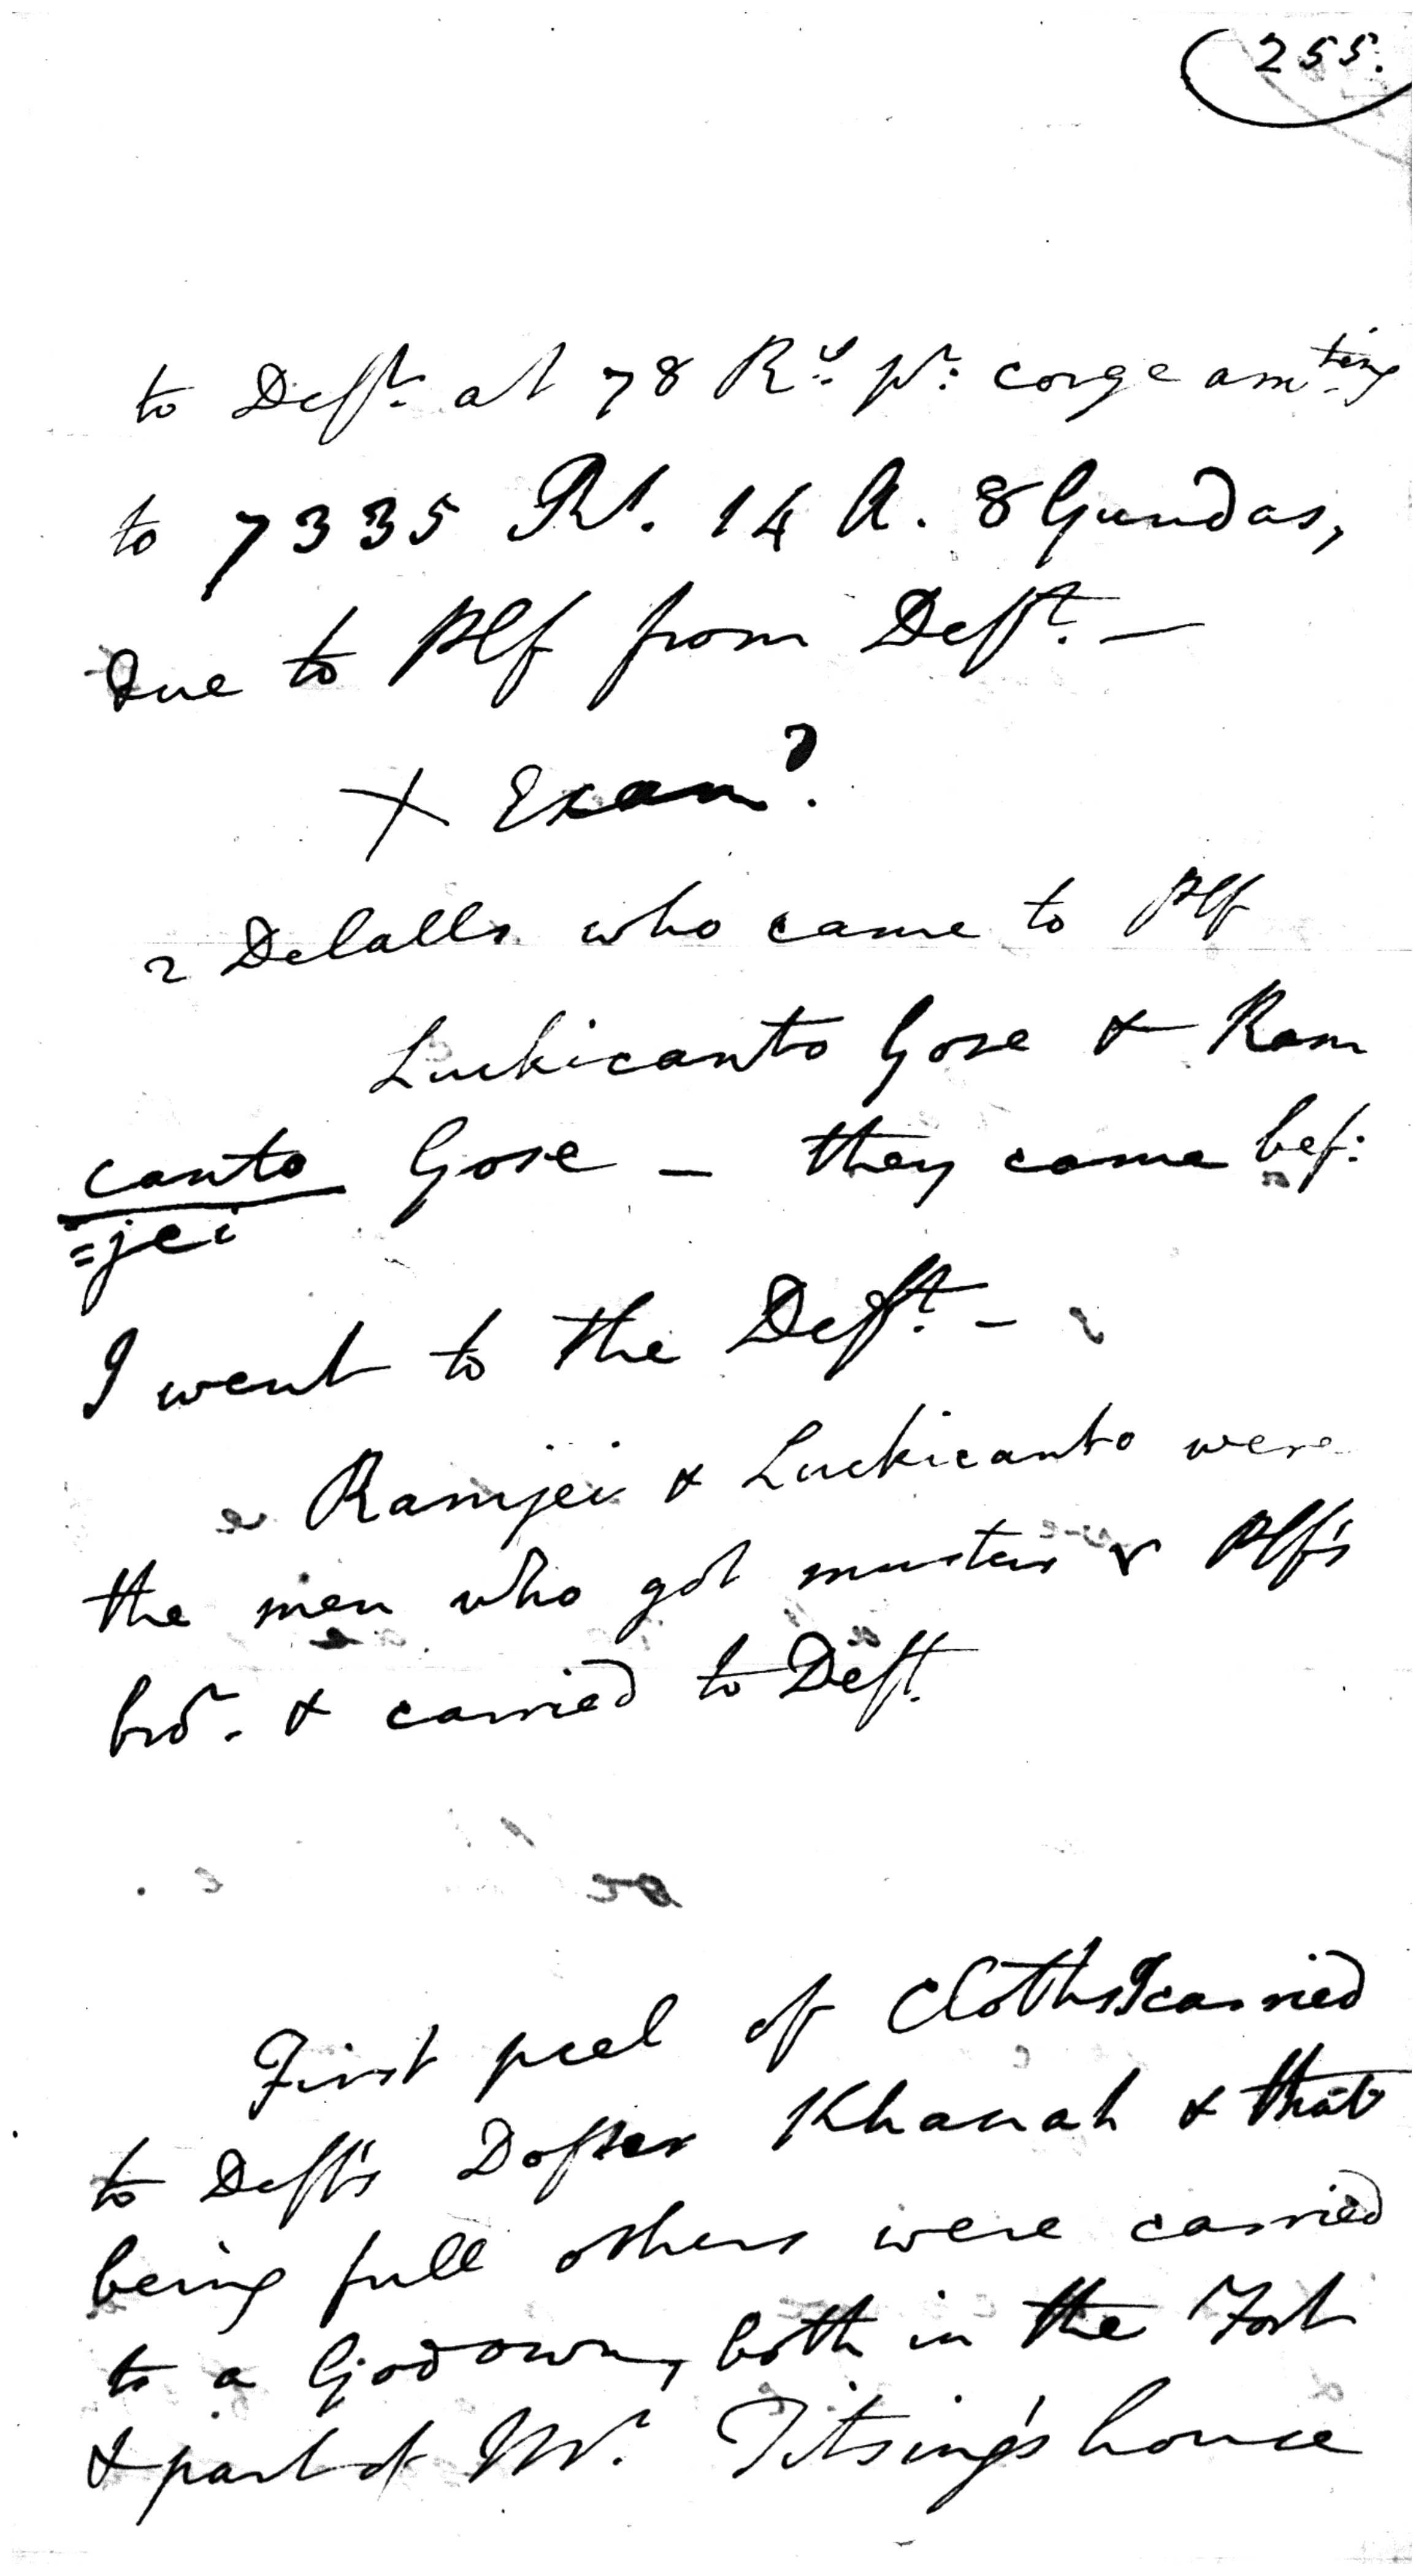 255.
to Defᵗ. at 78 Rˢ. pʳ: corge amᵗⁱⁿᵍ
to 7335 Rˢ. 14 A. 8 Gundas,
due to Plf from Defᵗ. —
X Examᵈ.
2 Delalls who came to Plf
Luckicanto Gose & Ram
canto Gose — they came bef:
=jei
I went to the Defᵗ. —
Ramjei & Luckicanto were
the men who got musters & Plf's
broʳ. & carried to Defᵗ.
First pcel of Cloths I carried
to Defᵗ's Dofter Khanah & that
being full others were carried
to a Godown, both in the Fort
& part of Mʳ. Titsing's house